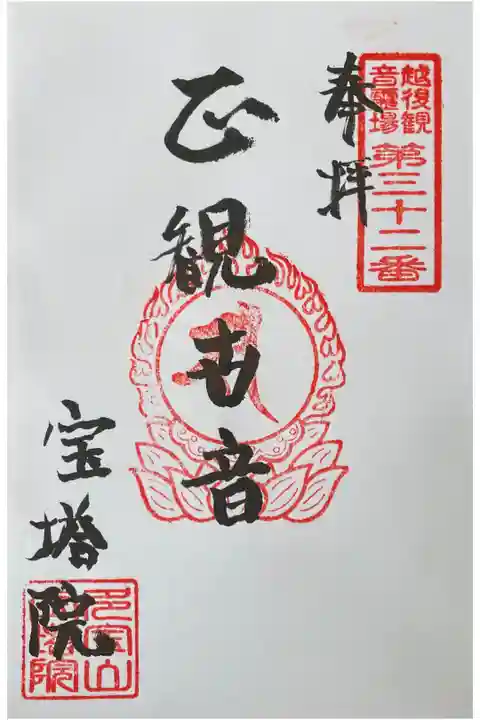 越後観音霊場
第三十二番
奉拝
正観世音
宝塔院
多宝山
宝塔院